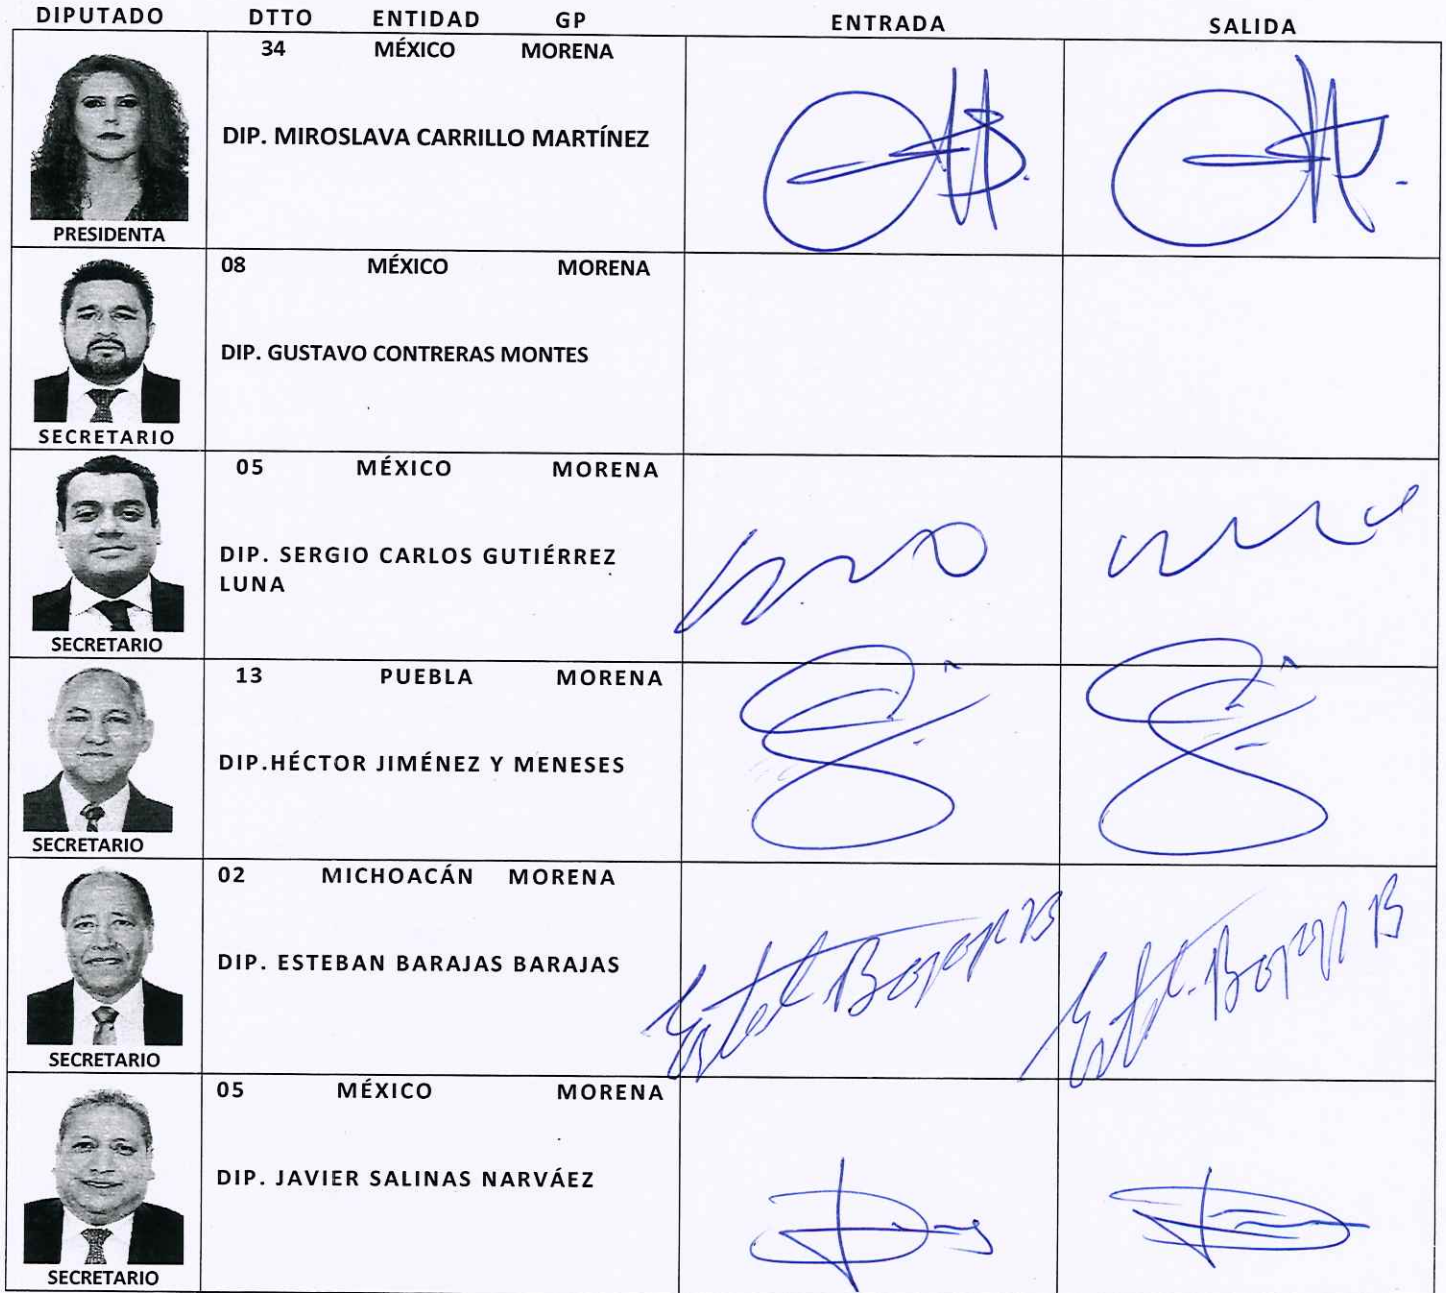 DIPUTADO DTTO ENTIDAD GP ENTRADA SALIDA
34 MÉXICO MORENA
DIP. MIROSLAVA CARRILLO MARTÍNEZ
PRESIDENTA
08 MÉXICO MORENA
DIP. GUSTAVO CONTRERAS MONTES
SECRETARIO
05 MÉXICO MORENA
DIP. SERGIO CARLOS GUTIÉRREZ
LUNA
SECRETARIO
13 PUEBLA MORENA
DIP.HÉCTOR JIMÉNEZ Y MENESES
SECRETARIO
02 MICHOACÁN MORENA
DIP. ESTEBAN BARAJAS BARAJAS
SECRETARIO
05 MÉXICO MORENA
DIP. JAVIER SALINAS NARVÁEZ
SECRETARIO